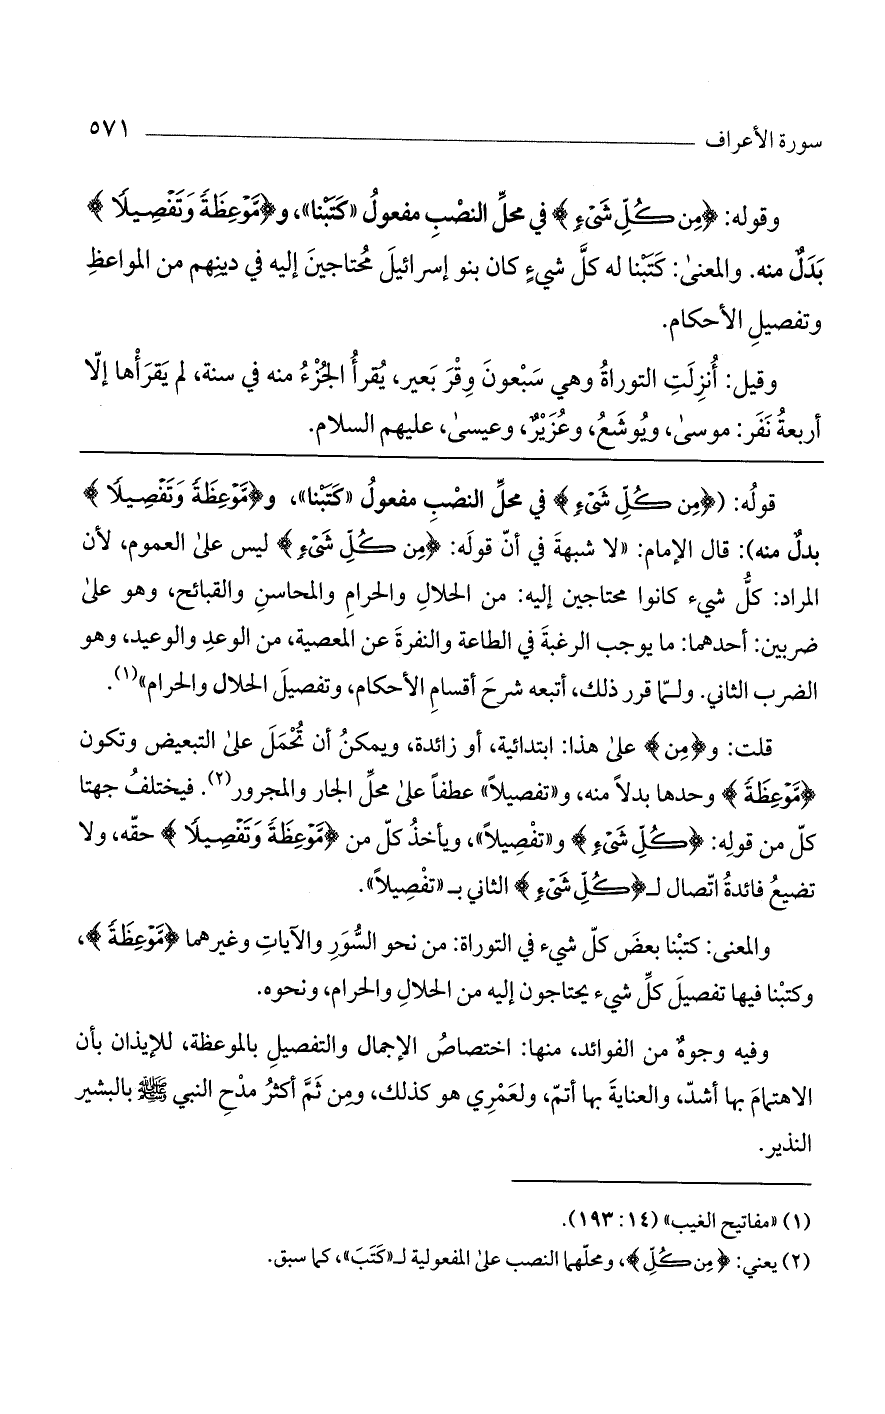 سورة الأعراف ٥٧١
وقوله: ﴿مِن كُلِّ شَيْءٍ﴾ في محلِّ النصْبِ مفعولُ «كَتَبْنا»، و﴿مَّوْعِظَةً وَتَفْصِيلًا﴾
بَدَلٌ منه. والمعنىٰ: كَتَبْنا له كلَّ شيءٍ كان بنو إسرائيلَ مُحتاجينَ إليه في دينِهم من المواعظِ
وتفصيلِ الأحكام.
وقيل: أُنزِلَتِ التوراةُ وهي سَبْعونَ وِقْرَ بَعير، يُقرأُ الجُزْءُ منه في سنة، لم يَقرَأْها إلّا
أربعةُ نَفَر: موسىٰ، ويُوشَعُ، وعُزَيْرٌ، وعيسىٰ، عليهم السلام.
قولُه: (﴿مِن كُلِّ شَيْءٍ﴾ في محلِّ النصْبِ مفعولُ «كَتَبْنا»، و﴿مَّوْعِظَةً وَتَفْصِيلًا﴾
بدلٌ منه): قال الإمام: «لا شبهةَ في أنّ قولَه: ﴿مِن كُلِّ شَيْءٍ﴾ ليس علىٰ العموم، لأن
المراد: كلُّ شيء كانوا محتاجين إليه: من الحلالِ والحرامِ والمحاسنِ والقبائح، وهو علىٰ
ضربين: أحدهما: ما يوجب الرغبةَ في الطاعة والنفرةَ عن المعصية، من الوعدِ والوعيد، وهو
الضرب الثاني. ولـمّا قرر ذلك، أتبعه شرحَ أقسامِ الأحكام، وتفصيلَ الحلال والحرام»(١).
قلت: و﴿مِن﴾ علىٰ هذا: ابتدائية، أو زائدة، ويمكنُ أن تُحْمَلَ علىٰ التبعيض وتكون
﴿مَّوْعِظَةً﴾ وحدها بدلاً منه، و«تفصيلاً» عطفاً علىٰ محلِّ الجار والمجرور(٢). فيختلفُ جهتا
كلّ من قولِه: ﴿كُلِّ شَيْءٍ﴾ و«تفْصِيلاً»، ويأخذُ كلّ من ﴿مَّوْعِظَةً وَتَفْصِيلًا﴾ حقّه، ولا
تضيعُ فائدةُ اتّصال لـ﴿كُلِّ شَيْءٍ﴾ الثاني بـ«تفْصِيلاً».
والمعنى: كتبْنا بعضَ كلّ شيء في التوراة: من نحو السُّوَرِ والآياتِ وغيرهما ﴿مَّوْعِظَةً﴾،
وكتبْنا فيها تفصيلَ كلِّ شيء يحتاجون إليه من الحلالِ والحرام، ونحوه.
وفيه وجوهٌ من الفوائد، منها: اختصاصُ الإجمال والتفصيلِ بالموعظة، للإيذان بأن
الاهتمامَ بها أشدّ، والعنايةَ بها أتمّ، ولعَمْرِي هو كذلك، ومِن ثَمَّ أكثرُ مدْحِ النبي ﷺ بالبشير
النذير.
(١) «مفاتيح الغيب» (١٤: ١٩٣).
(٢) يعني: ﴿مِن كُلِّ﴾، ومحلّهما النصب علىٰ المفعولية لـ«كَتَبَ»، كما سبق.